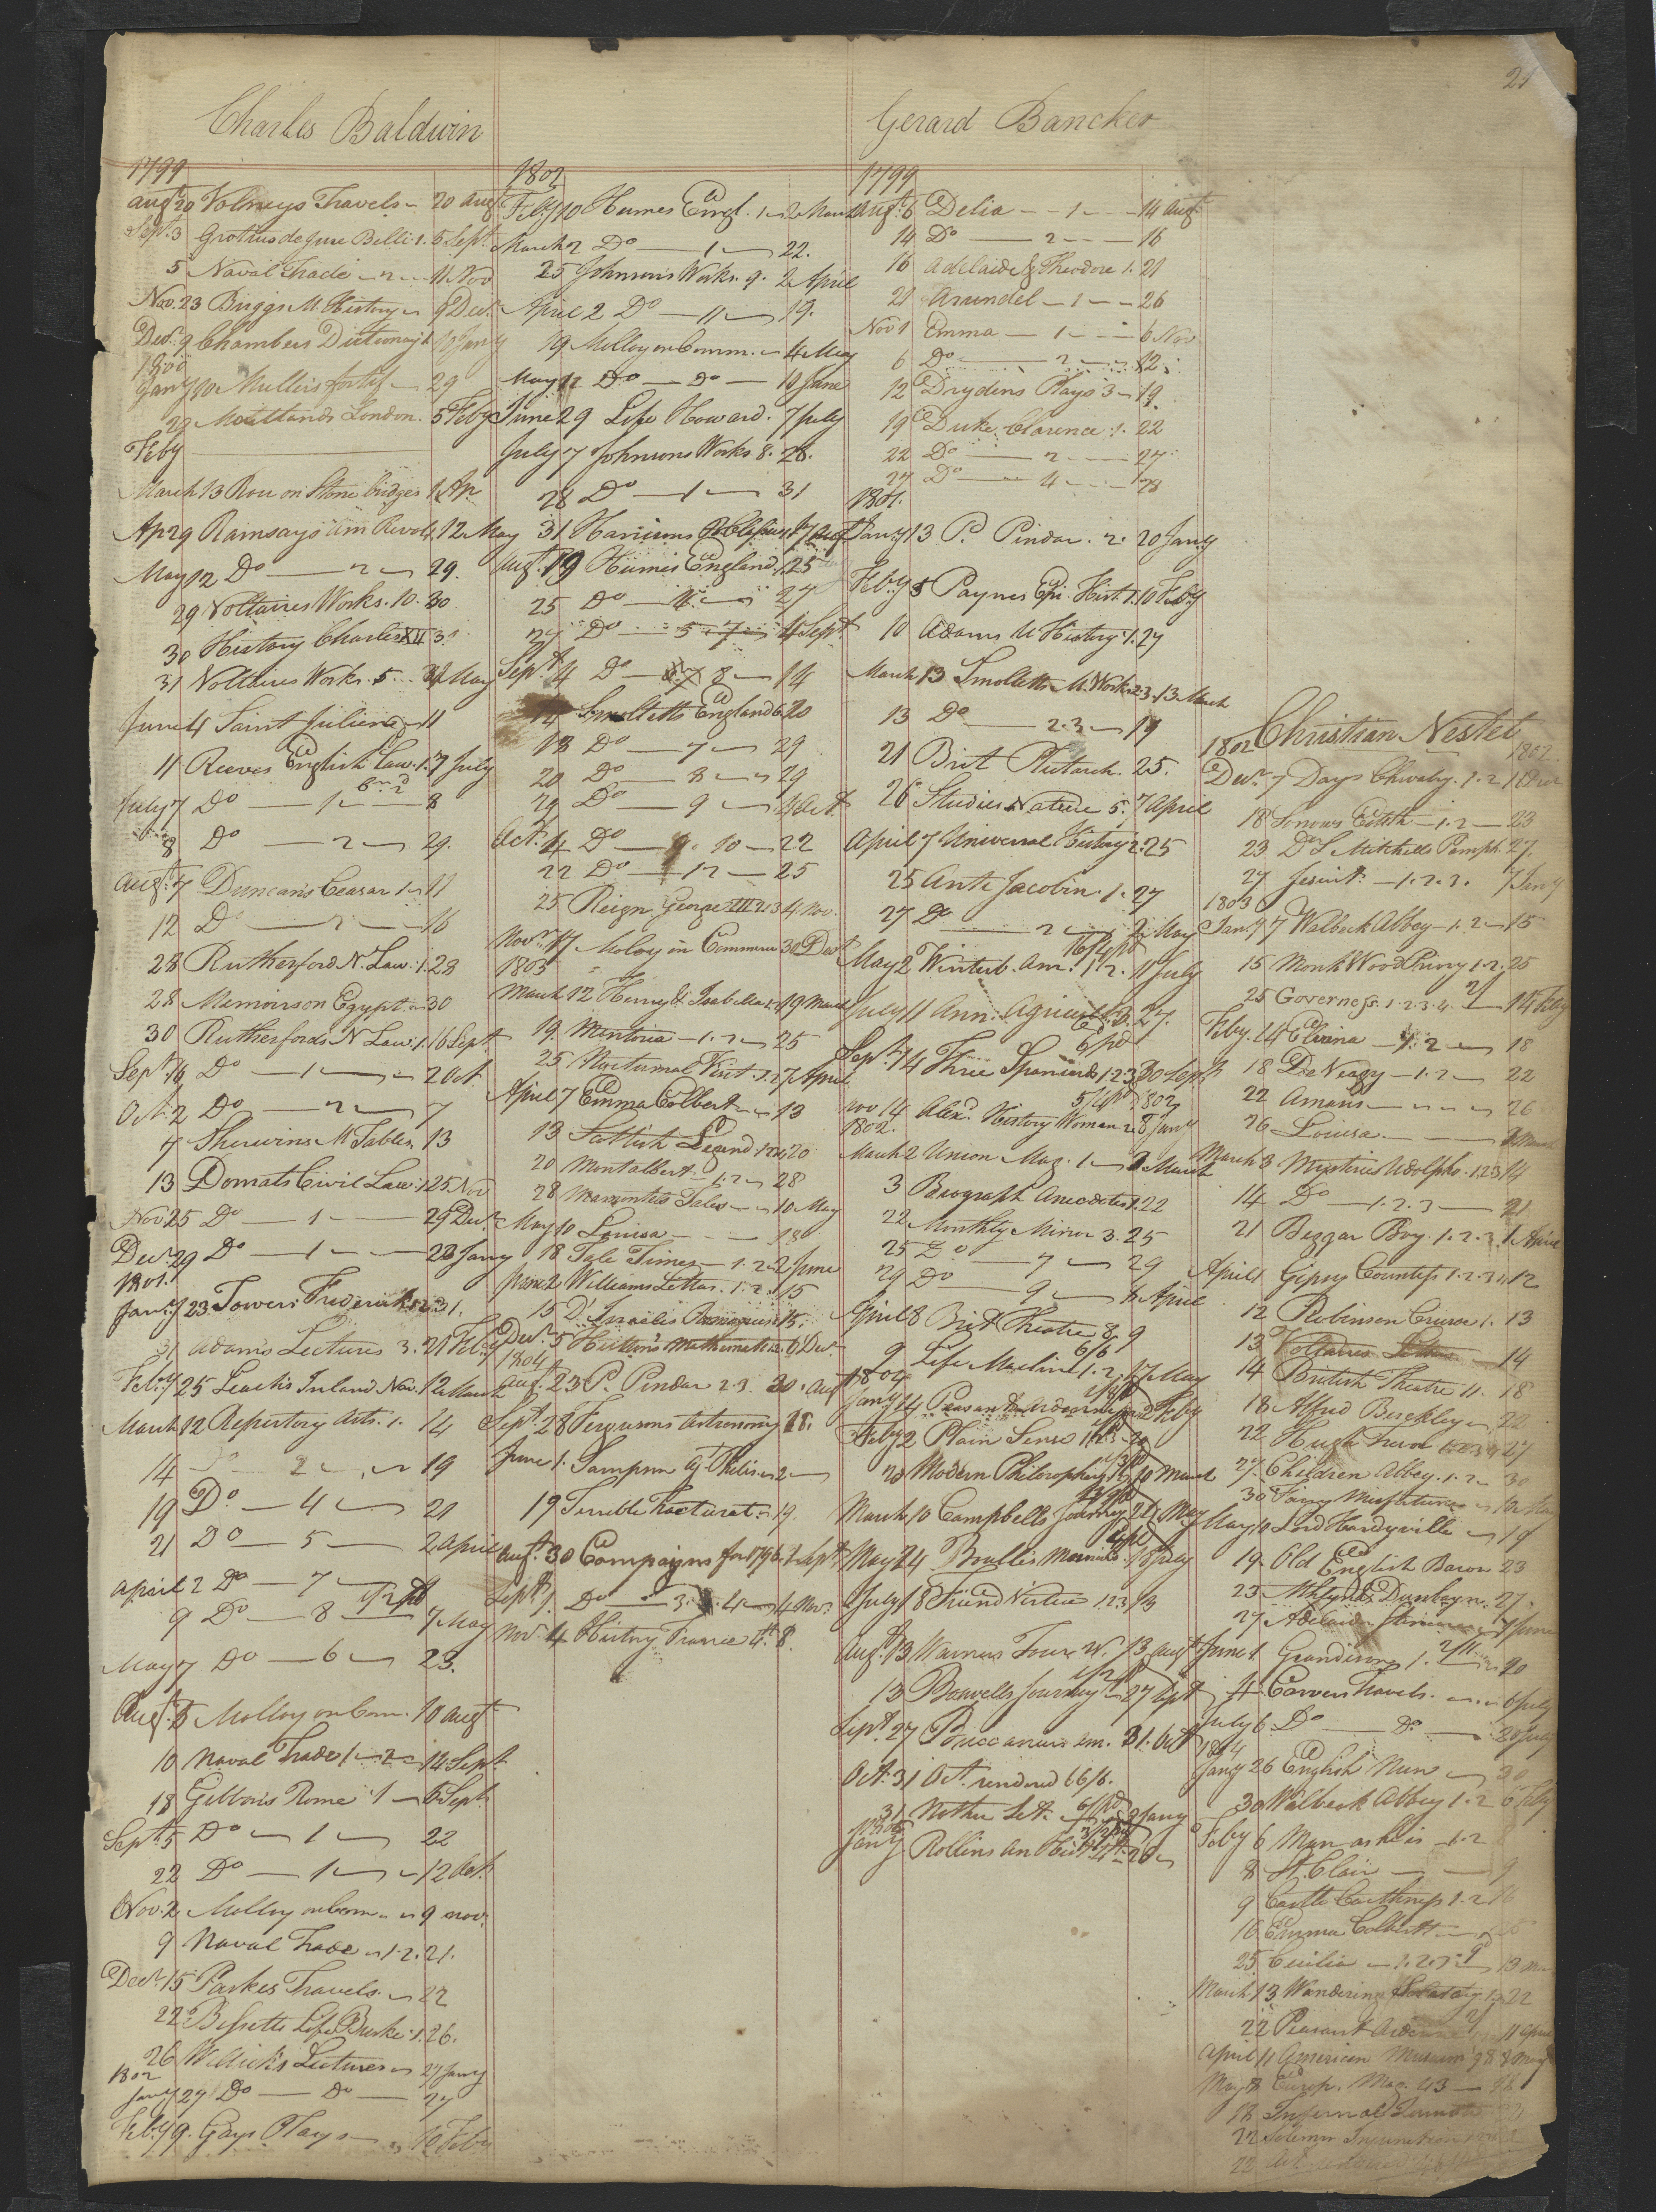 21
Charles Baldwin
1799
Augt 20 Volneys Travels 20 Augt
Sept. 3 Grotius de jure Belli 1. 5 Sept.
5 Naval Trade 2 11 Nov
Nov. 23 Briggs M. History 9 Decr.
Decr. 9 Chambers Dictionary 1 10 Jany
1800
Jany 10 Mullers fortif 29
29 Maitlands London. 5 Feby
Feby
March 13 Rou on Stone bridges 1 Ap
Ap 29 Ramsays Am Revol. 1. 12 May
May 12 Do 2 29.
29 Voltaires Works. 10. 30
30 History Charles XII 31
31 Voltaires Works. 5. 31 May
June 4 Saint Julien 11
11 Reeves English Law. 1. 7 July
July 7 Do 1 8
8 Do 2 29.
Augt. 7 Duncans Ceasar 1 11
12 Do 2 16
28 Rutherford N. Law. 1. 28
28 Memoirs on Egypt 30
30 Rutherfords N Law. 1. 16 Sept.
Sept 16 Do 1 2 Oct
Oct. 2 Do 2 7
7 Sherwins M Tables. 13
13 Domats Civil Law. 1 25 Nov
Nov 25 Do 1 29 Decr.
Decr. 29 Do 1 23 Jany
1801.
Jany 23 Towers Frederick 1.2. 31.
31 Adams Lectures 3. 21 Feby
Feby 25 Leach's Inland Nav. 12 March
March 12 Repertory Arts. 1. 14
14 2 19
19 Do 4 21
21 Do 5 2 April
April 2 Do 7 9
9 Do 8 7 May
May 7 Do 6 23.
Augt. 5 Molloy on Com. 10 Augt
10 Naval Trade 1 2 14 Sept
18 Gibbons Rome 1 5 Sept.
Sept. 5 Do 1 22
22 Do 1 12 Oct.
Nov. 2 Molloy on Com 9 nov.
9 Naval Trade 1. 2. 21.
Decr. 15 Parkes Travels. 22
22 Bissetts Life Burke. 1. 26.
26 Willich's Lectures 27 Jany
1802
Jany 27 Do Do 27
Feby 9. Gays Plays 10 Feby
1802
Feby 10 Humes Engl. 1 2 March
March 2 Do 1 22.
25 Johnsons Works. 9. 2 April
April 2 Do 11 19.
19 Molloy on Comm. 4 May
May 12 Do Do 10 June
June 29 Life Howard. 7 July
July 7 Johnsons Works 8. 28.
28 Do 1 31
31 Harrisons 17 Augt
Augt. 19 Humes England. 1. 25
25 Do 4 27
27 Do 5 7 4 Sept
Sept. 4 Do 8 14
14 Smolletts England 6. 20
18 Do 7 29
20 Do 8 29
29 Do 9 4 Oct.
Oct. 4 Do 10 22
22 Do 12 25
25 Reign George III 2. 3 4 Nov.
Novr. 17 Moloy on Commerce 30 Decr
1803
March 12 Henry & Isabella 1. 2 19 March
19. Mentoria 1. 2 25
25 Nocturnal Visit. 1. 2 7 April
April 7 Emma Colbert 13
13 Scottish Legend 1 2 20
20 Montalbert 1. 2 28
28 Marmontels Tales 10 May
May 10 Louisa 18
18 Tale Times 1. 2 2 June
June 2 Williams Letters. 1. 2. 15
15 D'Israelis Romances 15.
Decr. 5 Hutton's Mathematics. 6 Decr.
1804
Augt. 23 P. Pindar 2. 3. 30. Augt
Sept. 28 Fergusons Astronomy 28.
June 1. Sampson agt Philis. 2
19 Terrible Tractorat. 19.
Augt. 30 Campaigns for 1796. 1 Sept
Sept 1. Do 3. 4 4 Nov.
Nov. 4 History France 4t. 8.
Gerard Bancker
1799
Augt. 6 Delia 1 14 Augt
14 Do 2 16
16 Adelaide & Theodore 1. 21
21 Arundel 1 26
Nov 1 Emma 1 6 Nov
6 Do 2 12
12 Drydens Plays 3 19
19 Duke Clarence. 1. 22
22 Do 2 27
27 Do 4 28
1801.
Jany 13 P. Pindar. 2. 20 Jany
Feby 5 Paynes Epi. Hist. 1. 10 Feby
10 Adams U History 1. 27
March 13 Smolletts M. Works 2. 3. 13 March
13 Do 2. 3 19
21 Brit Plutarch. 25.
26 Studies Nature 5. 7 April
April 7 Universal History 2. 25
25 Anti Jacobin. 1. 27
27 Do 2 2 May
May 2 Winterb. Am. 1. 2. 11 July
July 11 Ann. Agricul. 3. 27.
Sept. 14 Three Spaniards 1. 2. 3 30 Sept
Nov 14 Alexr. History Woman 2. 8 Jany
1802.
March 2 Union Mag. 1 3 March
3 Biograph Anecdotes 1. 22
22 Monthly Mirror 3. 25
25 Do 7 29
29 Do 9 8 April
April 8 Brit Theatre 8. 9
9 Life Machin 1. 2. 17 May
1804
Jany 14 Peasant Ardennes 2 Feby
Feby 2 Plain Sense 1. 2. 3 20
20 Modern Philosophers 10 March
March 10 Campbells Journey 24 May
May 24 18 July
July 18 Friend Virtue 1. 2. 3 13
Augt. 13 Warners Tour W. 13 Augt
13 Boswells Journey 27 Sept
Sept. 27 Buccaneers Am. 31. Oct
Oct. 31 Act. rendered 66/6.
31 2 Jany
Jany Rollins An Hist 20
Christian Nestel
1802
1802
Decr. 7 Days Chivalry. 1. 2
18 Sorrows Edith 1. 2 23
23 Dr. S Mitchells Pamph. 27.
27 Jesuit. 1. 2. 3. 7 Jany
1803
Jany 7 Walbeck Abbey 1. 2 15
15 Monk Wood Priory 1. 2. 25
25 Governess. 1. 2. 3. 4. 14 Feby
Feby. 14 Elvina 1. 2 18
18 DeNeagy 1. 2 22
22 Amans 26
26 Louisa 3 March
March 3 Mysteries Udolpho. 1. 2. 3 14
14 Do 1. 2. 3 21
21 Beggar Boy. 1. 2. 3. 1 April
April 1 Gipsy Countess 1. 2. 3 4 12
12 Robinson Crusoe 1. 13
13 Voltaires Letters 14
14 British Theatre 11. 18
18 Alfred Berkley 22
22 Hugh Trevor 27
27. Children Abbey. 1. 2 30
30 Fairy Misfortunes 10 May
May 10 Lord Hardyville 19
19. Old English Baron 23
23 Athlyn & Dunbayne. 27.
27 7 June
June 1 Grandison 1. 20
4 Carvers Travels. 6 July
July 6 Do Do 20 July
1804
Jany 26 English Nun 30
30 Walbeck Abbey 1. 2 6 Feby
Feby 6 Man as he is 1. 2 8
8 St. Clair 9
9 Castle Caithness 1. 2 16
16 Emma Colbert 25
25 Cecilia 1. 2. 3 13 Mar
March 13 Wandering 22
22 Peasant Ardennes 11 April
April 11 American Museum 9 8 8 May
May 8 Europ. Mag. 43 18
18 Infernal
22 Solemn Injunction
22